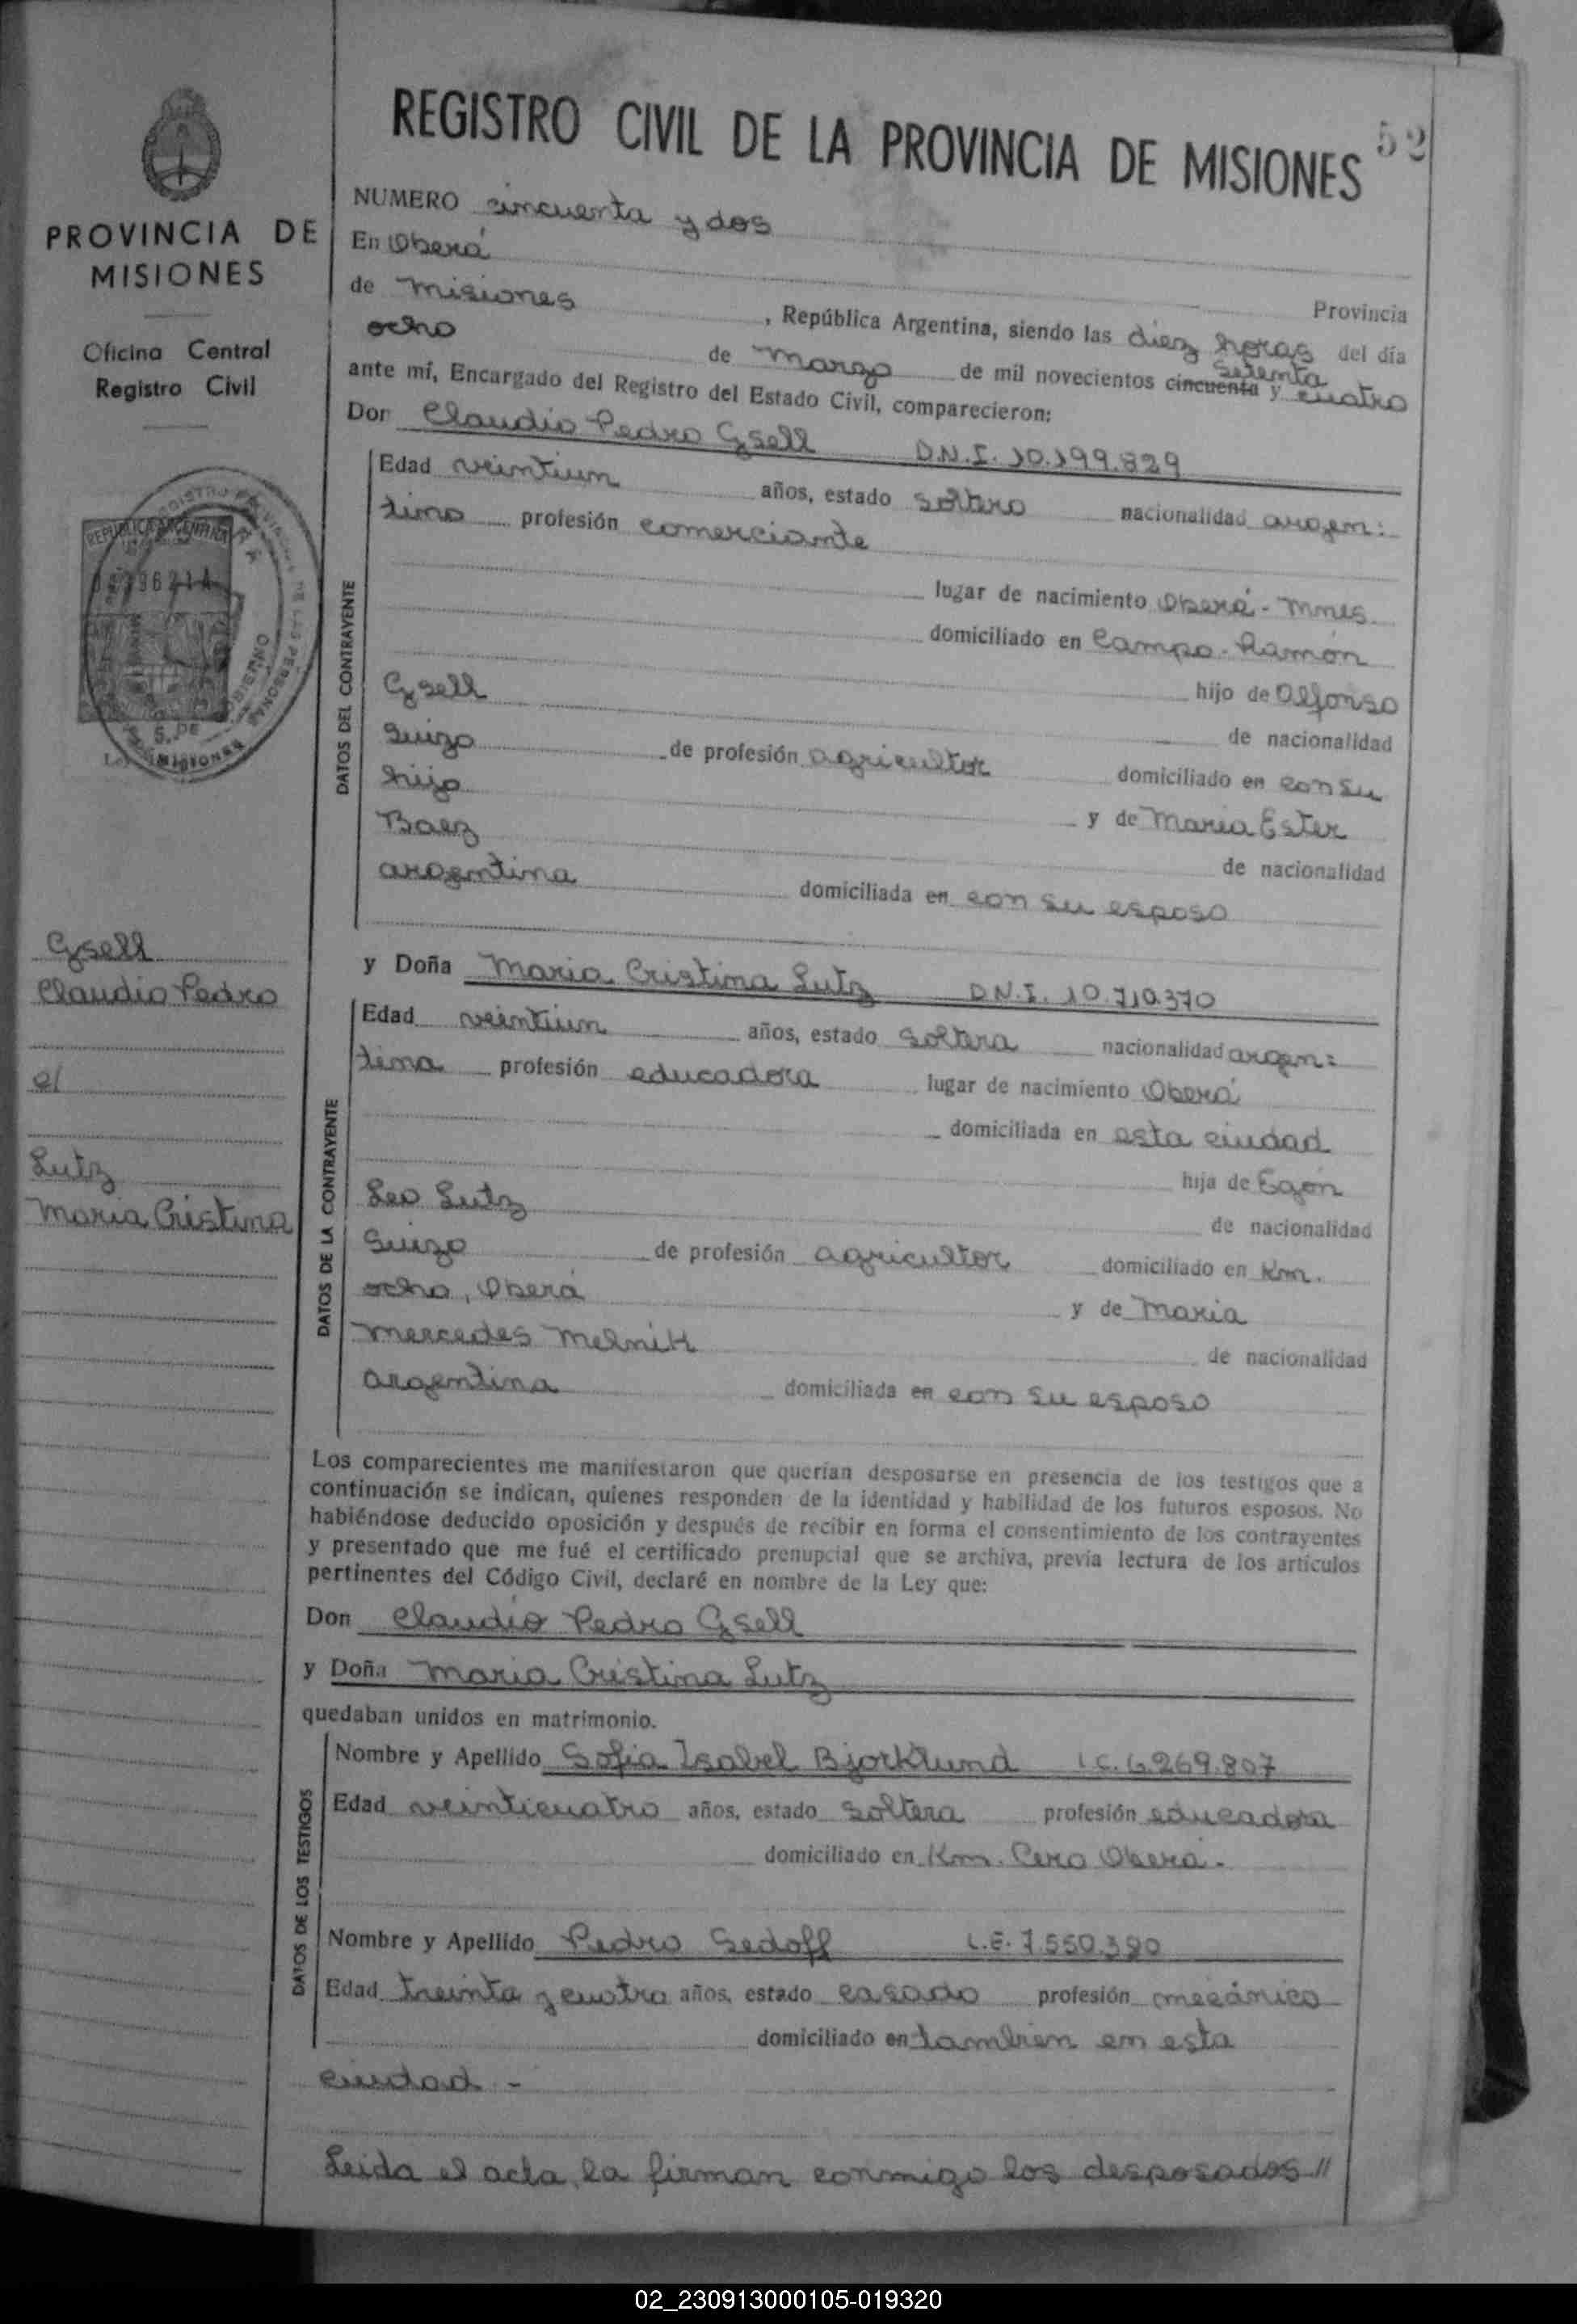 REGISTRO CIVIL DE LA PROVINCIA DE MISIONES 52
PROVINCIA DE
MISIONES
Oficina Central
Registro Civil
REPUBLICA ARGENTINA
S. DE
MISIONES
Gsell
Claudio Pedro
c/
Lutz
Maria Cristina
NUMERO cincuenta y dos
En Oberá Provincia
de Misiones, República Argentina, siendo las diez horas del día
ocho de Marzo de mil novecientos cincuenta setenta y cuatro
ante mí, Encargado del Registro del Estado Civil, comparecieron:
Don Claudio Pedro Gsell D.N.I. 10.199.829
DATOS DEL CONTRAYENTE
Edad veintiun años, estado soltero nacionalidad argen:
tino profesión comerciante
lugar de nacimiento Oberá - Mnes.
domiciliado en Campo-Ramón
hijo de Alfonso
Gsell de nacionalidad
Suizo de profesión agricultor domiciliado en con su
hijo y de Maria Ester
Baez de nacionalidad
argentina domiciliada en con su esposo
y Doña Maria Cristina Lutz D.N.I. 10.710.370
DATOS DE LA CONTRAYENTE
Edad veintiun años, estado soltera nacionalidad argen:
tina profesión educadora lugar de nacimiento Oberá
domiciliada en esta ciudad
hija de Egón
Leo Lutz de nacionalidad
Suizo de profesión agricultor domiciliado en Km.
ocho, Oberá y de Maria
Mercedes Melnik de nacionalidad
argentina domiciliada en con su esposo
Los comparecientes me manifestaron que querían desposarse en presencia de los testigos que a
continuación se indican, quienes responden de la identidad y habilidad de los futuros esposos. No
habiéndose deducido oposición y después de recibir en forma el consentimiento de los contrayentes
y presentado que me fué el certificado prenupcial que se archiva, previa lectura de los artículos
pertinentes del Código Civil, declaré en nombre de la Ley que:
Don Claudio Pedro Gsell
y Doña Maria Cristina Lutz
quedaban unidos en matrimonio.
DATOS DE LOS TESTIGOS
Nombre y Apellido Sofia Isabel Bjorklund L.C. 6.269.807
Edad veinticuatro años, estado soltera profesión educadora
domiciliado en Km. Cero Oberá.-
Nombre y Apellido Pedro Sedoff L.E. 7.550.390
Edad treinta y cuatro años, estado casado profesión mecánico
domiciliado en tambien en esta
ciudad.-
Leida el acta, la firman conmigo los desposados//
02_230913000105-019320